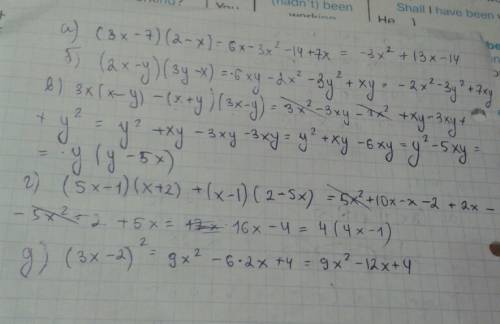 (hadn't) been
Shall I have been
а) (3x-7)(2-x) - 6x - 3x² - 14 + 7x = -3x² + 13x - 14
б) (2x-y)(3y-x) = 6xy - 2x² - 3y² + xy = -2x² - 3y² + 7xy
в) 3x(x-y) - (x+y)(3x-y) = 3x² - 3xy - 3x² + xy - 3xy +
+ y² = y² + xy - 3xy - 3xy = y² + xy - 6xy = y² - 5xy =
= y (y - 5x)
г) (5x-1)(x+2) + (x-1)(2-5x) = 5x² + 10x - x - 2 + 2x -
- 5x² - 2 + 5x = 16x - 4 = 4(4x-1)
д) (3x-2)² = 9x² - 6·2x + 4 = 9x² - 12x + 4